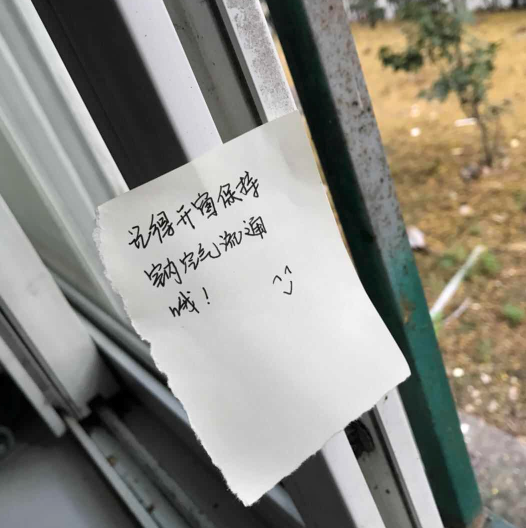 记得开窗保持
室内空气流通
哦!